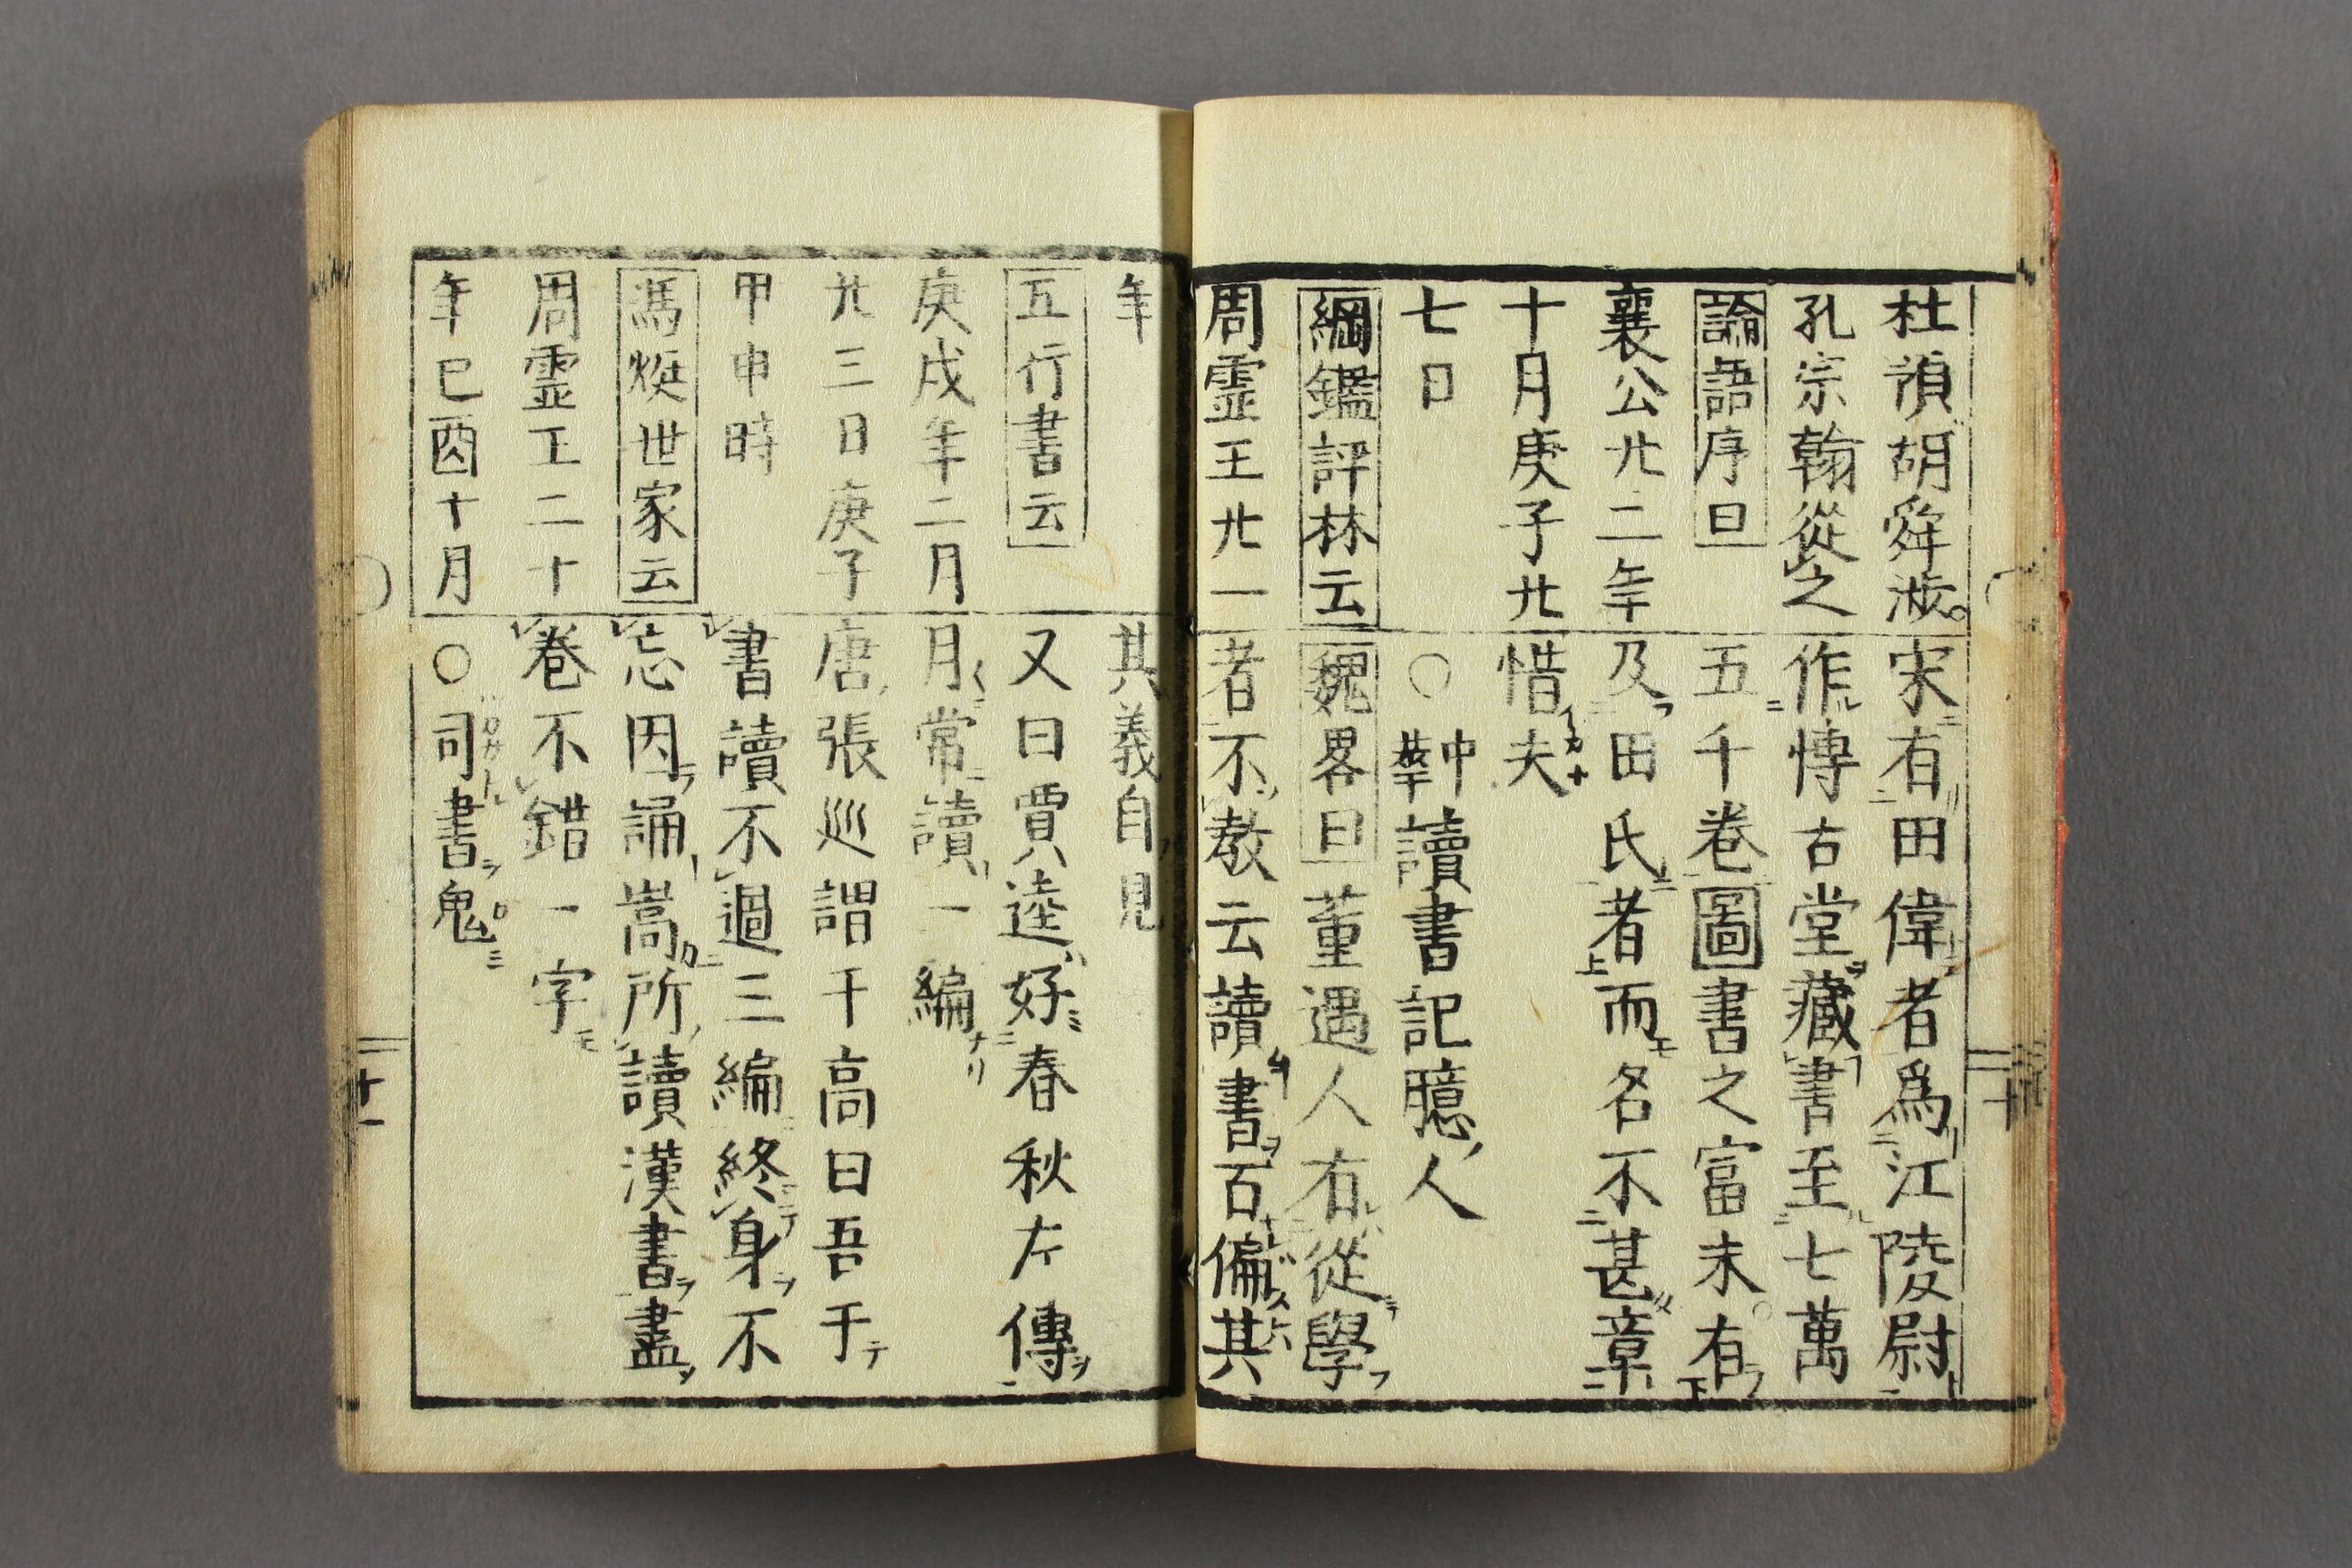 杜預胡舜渉。
孔宗翰從之
論語序曰
襄公廿二年
十月庚子廿
七日
綱鑑評林云
周霊王廿一
宋有田偉者爲江陵尉
作博古堂藏書至七萬
五千卷圖書之富未有
及田氏者而名不甚章
惜夫
○中華讀書記臆人
魏畧曰董遇人有從學
者不敎云讀書百偏其
年
五行書云
庚戌年二月
廿三日庚子
甲申時
馮烶世家云
周霊王二十
年己酉十月
其義自見
又曰賈逵好春秋左傳
月常讀一編
唐張巡謂于高曰吾于
書讀不過三編終身不
忘因誦嵩所讀漢書盡
卷不錯一字
○司書鬼